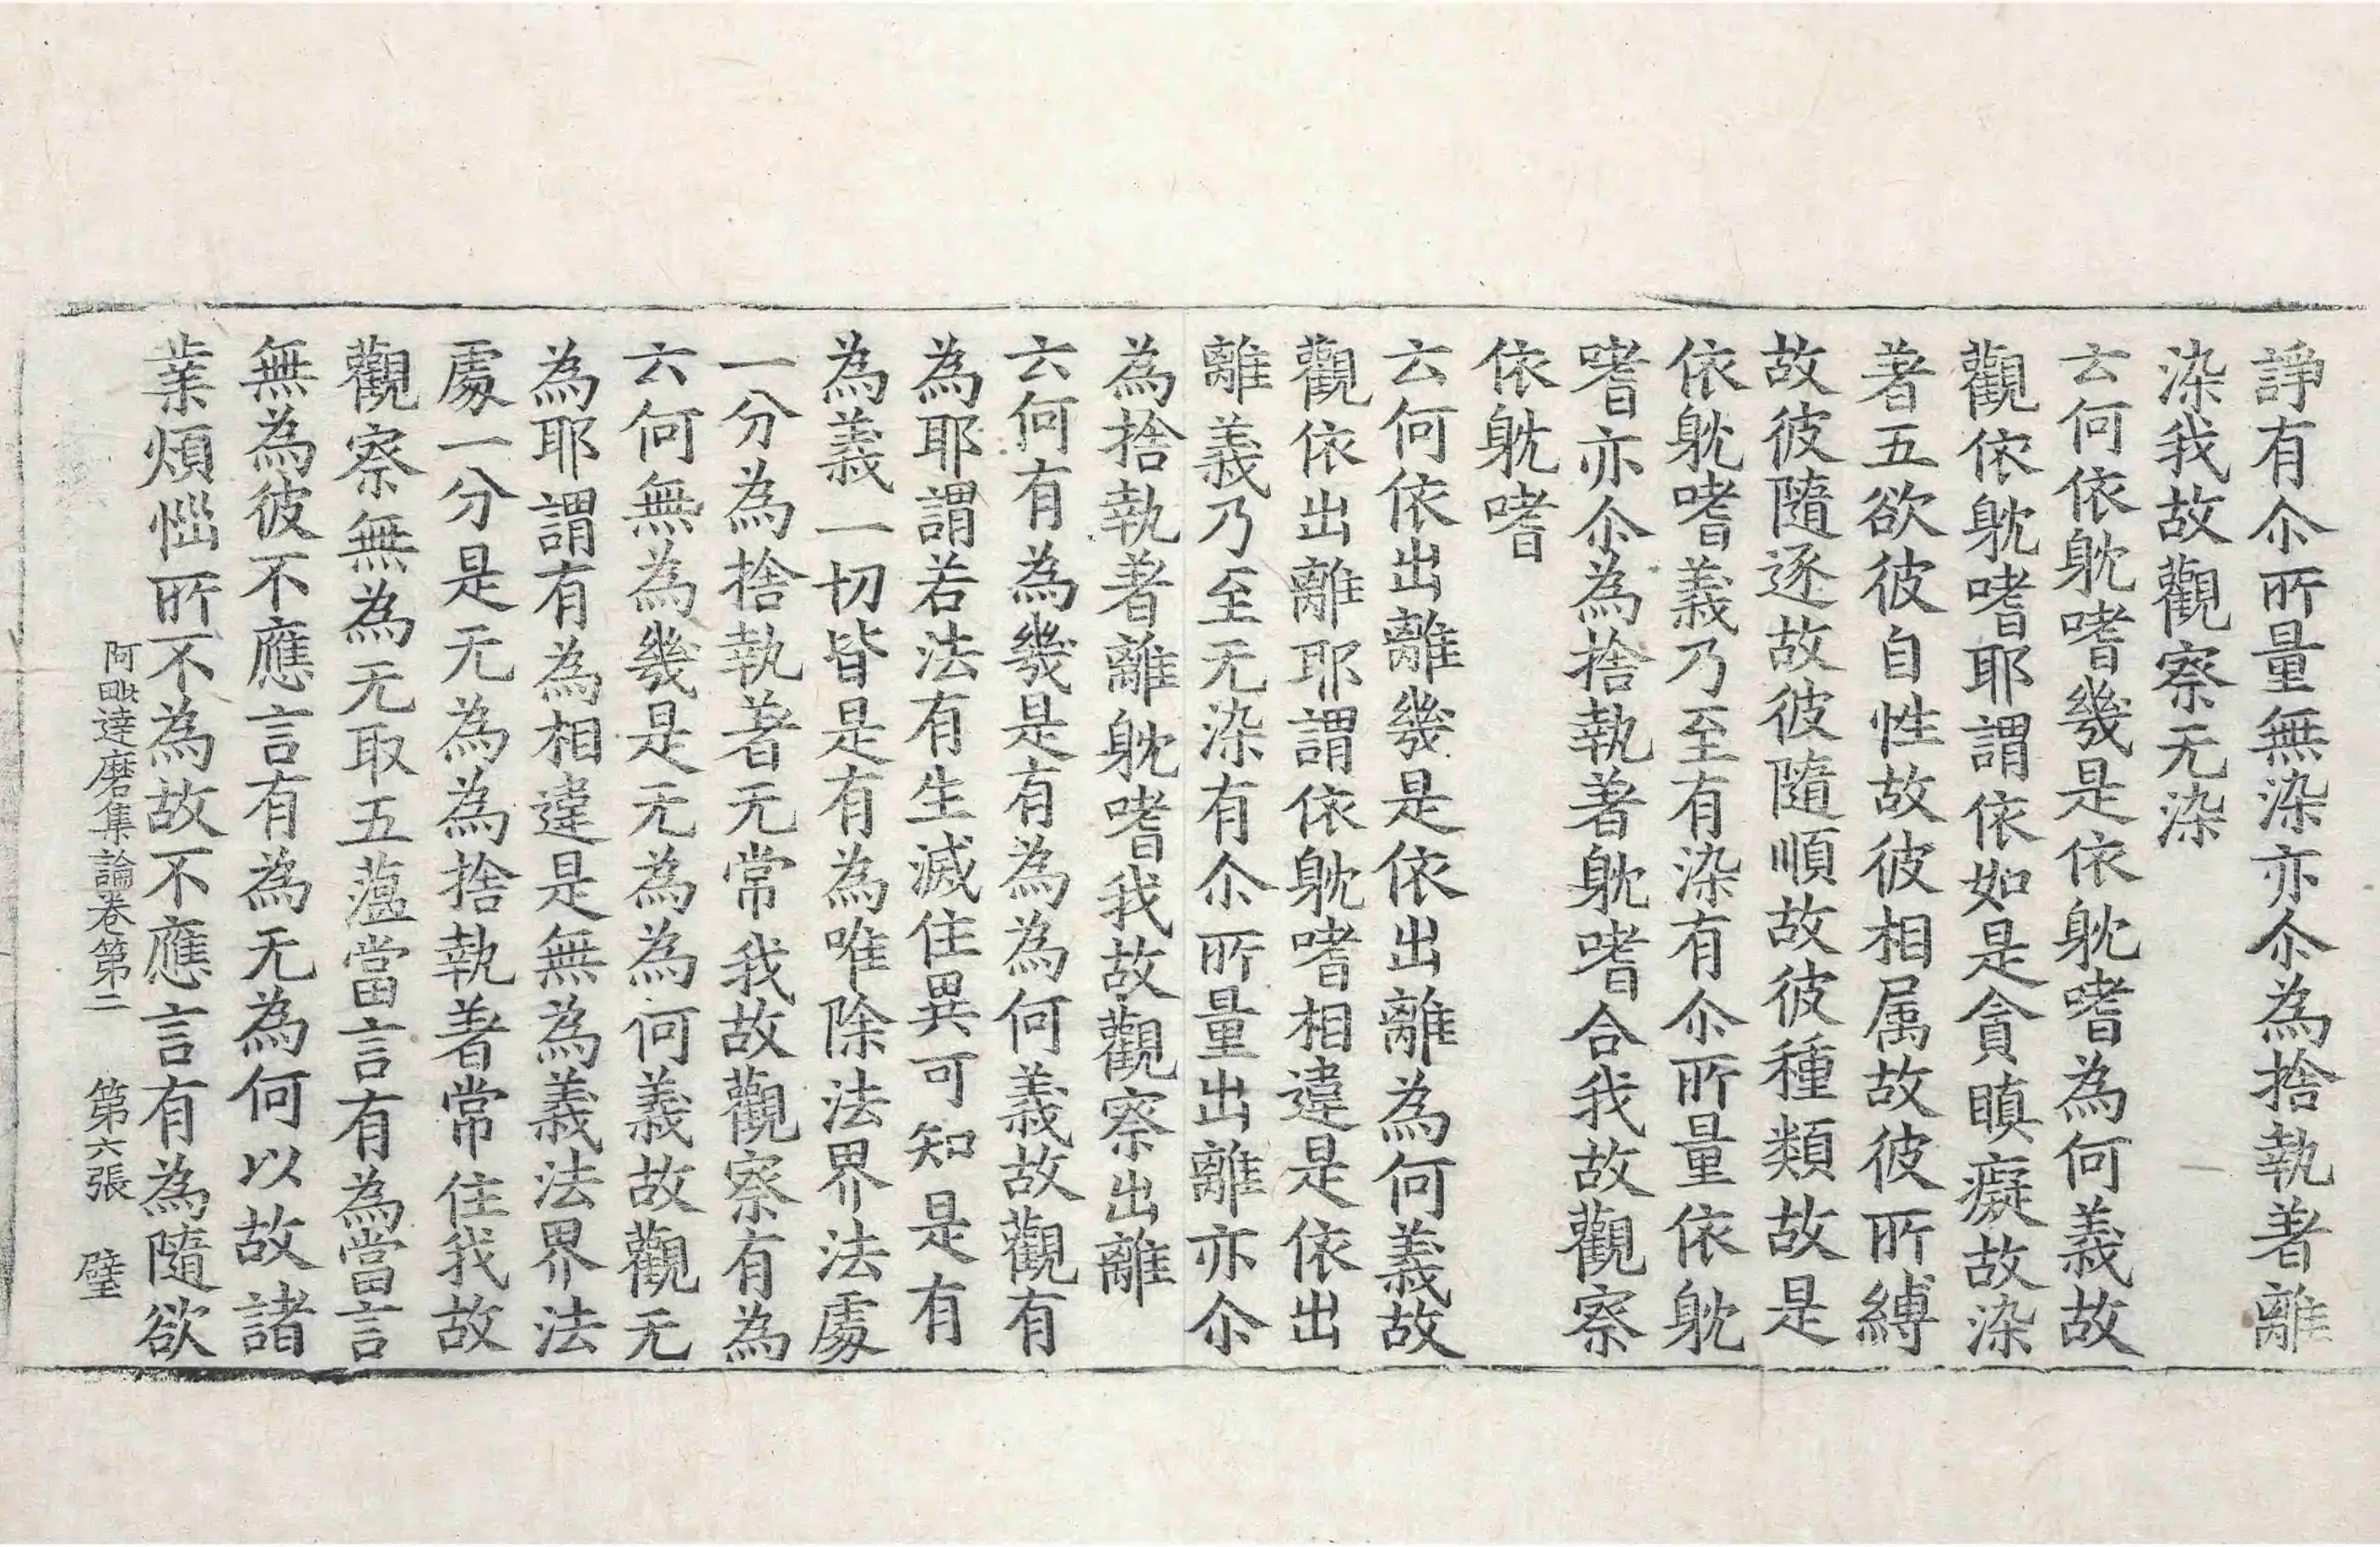 諍有尒所量無染亦尒為捨執著離
染我故觀察无染
云何依躭嗜幾是依躭嗜為何義故
觀依躭嗜耶謂依如是貪瞋癡故染
著五欲彼自性故彼相属故彼所縛
故彼隨逐故彼隨順故彼種類故是
依躭嗜義乃至有染有尒所量依躭
嗜亦尒為捨執著躭嗜合我故觀察
依躭嗜
云何依出離幾是依出離為何義故
觀依出離耶謂依躭嗜相違是依出
離義乃至无染有尒所量出離亦尒
為捨執著離躭嗜我故觀察出離
云何有為幾是有為為何義故觀有
為耶謂若法有生滅住異可知是有
為義一切皆是有為唯除法界法處
一分為捨執著无常我故觀察有為
云何無為幾是无為為何義故觀无
為耶謂有為相違是無為義法界法
處一分是无為為捨執著常住我故
觀察無為无取五蕴當言有為當言
無為彼不應言有為无為何以故諸
業煩惱所不為故不應言有為隨欲
阿毗達磨集論卷第二 第六張 璧